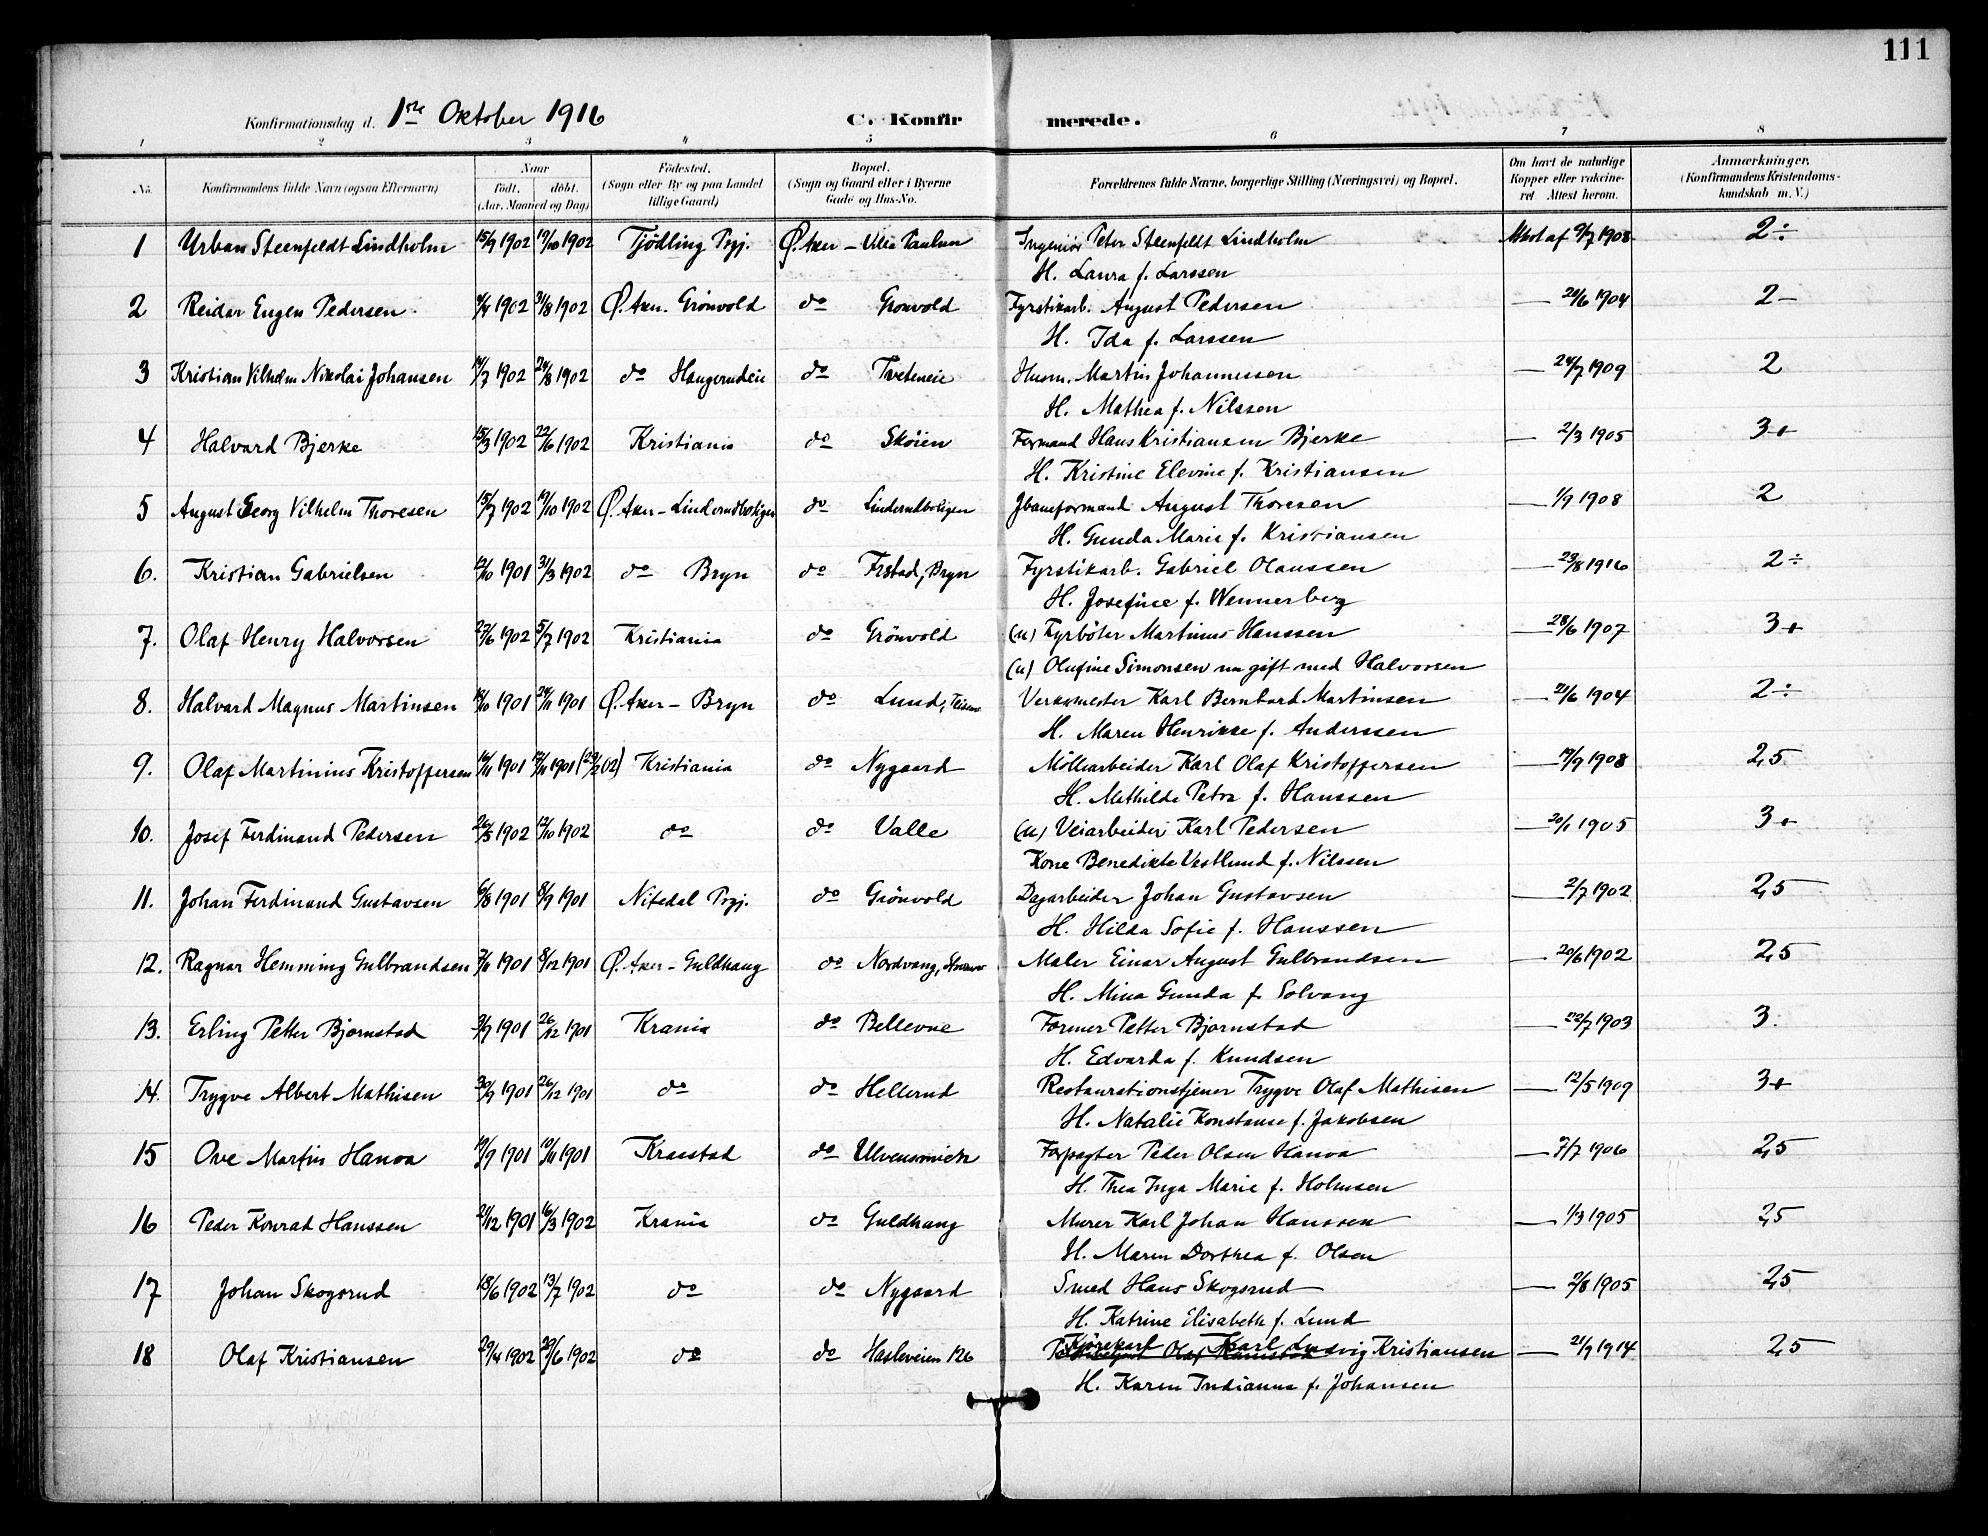 111
Konfirmationsdag d. 1ste Oktober 1916 C. Konfirmerede.
1 2 3 4 5 6 7 8
No. Konfirmandens fulde Navn (ogsaa Efternavn) Naar født. døbt. (Aar, Maaned og Dag) Fødested. (Sogn eller By og paa Landet tillige Gaard) Bopæl. (Sogn og Gaard eller i Byerne Gade og Hus-No. Forældrenes fulde Navne, borgerlige Stilling (Næringsvei) og Bopæl. Om havt de naturlige Kopper eller vakcineret. Attest herom. Anmærkninger, (Konfirmandens Kristendomskundskab m. V.)
1 Urban Steenfeldt Lindholm 15/9 1902 19/10 1902 Tjödling Prgj. Ø. Aker - Villa Paulun Ingeniör Peter Steenfeldt Lindholm Attest af 9/7 1908 2÷
H. Laura f. Larssen
2 Reidar Eugen Pedersen 4/4 1902 31/8 1902 Ø. Aker. Grönvold do Grönvold Fyrstikarb. August Pedersen — 20/6 1904 2 —
H. Ida f. Larssen
3 Kristian Vilhelm Nikolai Johansen 14/7 1902 24/8 1902 do Haugerudeie do Tveteneie Husm. Martin Johannessen — 24/7 1909 2
H. Mathea f. Nilssen
4 Halvard Bjerke 15/3 1902 22/6 1902 Kristiania do Skøien Formand Hans Kristiansen Bjerke — 2/3 1905 3+
H. Kristine Elevine f. Kristiansen
5 August Georg Vilhelm Thoresen 15/7 1902 19/10 1902 Ø. Aker - Linderudboligen do Linderudboligen Jbaneformand August Thoresen — 1/9 1908 2
H. Gunda Marie f. Kristiansen
6. Kristian Gabrielsen 12/10 1901 31/3 1902 do Bryn do Frstad, Bryn Fyrstikarb. Gabriel Olaussen — 29/8 1916 2÷
H. Josefine f. Wennerberg
7. Olaf Henry Halvorsen 27/6 1902 5/7 1902 Kristiania do Grönvold (u) Fyrböter Martinus Hanssen — 28/6 1907 3+
(u) Olufine Simonsen nu gift med Halvorsen
8. Halvard Magnus Martinsen 14/10 1901 24/11 1901 Ø. Aker - Bryn do Lund, Teisen Verksmester Karl Bernhard Martinsen — 20/6 1904 2÷
H. Maren Henrikke f. Anderssen
9. Olaf Martinius Kristoffersen 16/11 1901 17/11 1901 (23/2 02) Kristiania do Nygaard Möllearbeider Karl Olaf Kristoffersen — 19/9 1908 2,5
H. Mathilde Petra f. Hanssen
10. Josef Ferdinand Pedersen 26/5 1902 12/10 1902 do do Valle (u) Veiarbeider Karl Pedersen — 20/1 1905 3+
Kone Benedikte Vestlund f. Nilssen
11. Johan Ferdinand Gustavsen 6/8 1901 8/9 1901 Nitedal Prgj. do Grönvold Dagarbeider Johan Gustavsen — 2/7 1902 2,5
H. Hilda Sofie f. Hanssen
12. Ragnar Hemming Gulbrandsen 7/11 1901 8/12 1901 Ø. Aker - Guldhaug do Nordvang, Maler Einar August Gulbrandsen — 20/6 1902 2,5
H. Mina Gunda f. Solvang
13. Erling Petter Bjørnstad 3/9 1901 26/12 1901 Krania do Bellevue Former Petter Bjørnstad — 22/7 1903 3.
H. Edvarda f. Knudsen
14. Trygve Albert Mathisen 30/9 1901 26/12 1901 do do Hellerud Restaurationstjener Trygve Olaf Mathisen — 12/5 1909 3+
H. Natalie Konstanse f. Jakobsen
15 Ove Martin Hanoa 19/9 1901 10/11 1901 Kraastad do Ulvensmieth Forpagter Peder Olsen Hanoa — 7/7 1906 2,5
H. Thea Inga Marie f. Holmsen
16 Peder Konrad Hanssen 21/12 1901 16/3 1902 Krania do Guldhaug Murer Karl Johan Hanssen — 1/3 1905 2,5
H. Maren Dorthea f. Olsen
17 Johan Skogsrud 18/6 1902 13/7 1902 do do Nygaard Smed Hans Skogsrud — 2/8 1905 2,5
H. Katrine Elisabeth f. Lund
18 Olaf Kristiansen 29/4 1902 29/6 1902 do do Hasleveien 126 Kjörekarl Karl Ludvig Kristiansen — 21/9 1914 2,5
H. Karen Indianna f. Johansen